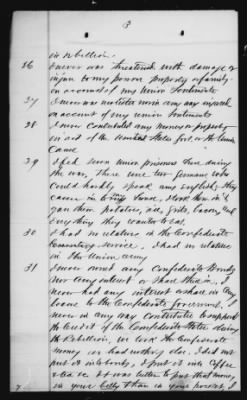 3
in rebellion.
26 I never was threatened with damage or
injury to my person property or family
on account of my Union Sentiments
27 I never was molested nor in any way injured
on account of my union sentiments
28 I never contributed any money or property
in aid of the United States forces or the Union
Cause
29 I fed seven Union prisoners there during
the war, There were two germans who
could hardly speak any english, they
came in my house, I took them in &
gave them potatoes, pie, grits, bacon, and
everything they wanted to eat
30 I had no relatives in the Confederate
service, I had no relatives
in the Union army
31 I never owned any Confederate Bonds
nor any interest or share therein, I
never had any interest or share in any
loan to the Confederate government. I
never in any way contributed to support
the credit of the Confederate States during
the Rebellion, we took the Confederate
money we had nothing else. I did not
put it into bonds, I put it into Coffee
tea &c. It was better to put that money
in your belly than in your pocket, I